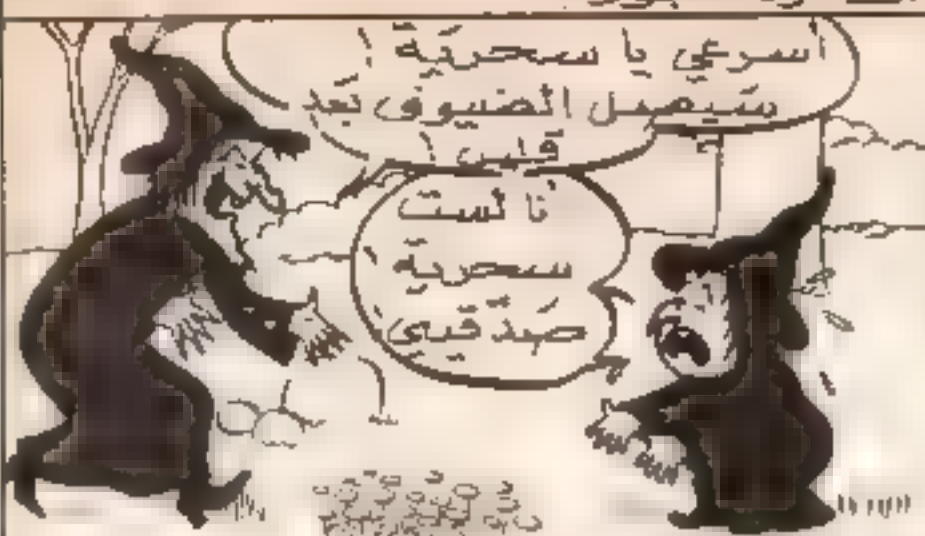 اسرعي يا سحرية !
سيصل الضيوف بعد
قليل !
نا لست
سحرية !
صدقيني